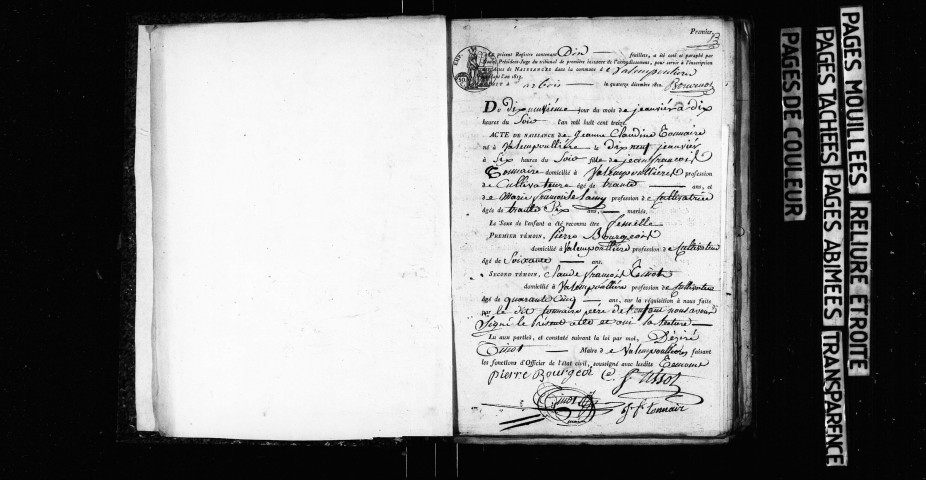 Premier
Le présent Registre contenant Dix feuillets, a été coté et paraphé par
Président-Juge du tribunal de première instance de l'arrondissement, pour servir à l'inscription
des actes de NAISSANCES dans la commune de Valempoulière
pendant l'an 1813.
Arbois le quatorze décembre 1812. Bouvenot
Du dixneuvième jour du mois de jeanvier à dix
heures du Soir l'an mil huit cent treize.
ACTE DE NAISSANCE de Jeanne Claudine Tonnaire
né à Valempoullière le dix neuf jeanvier
à Six heures du Soir fille de jean françois
Tonnaire domicilié à Valempoullière profession
de Cultivateure âgé de trante ans, et
de Marie françoise Lamy profession de Cultivatrice
âgée de trante Six ans, mariés.
Le Sexe de l'enfant a été reconnu être femelle
PREMIER TÉMOIN, Pierre Bourgeois
domicilié à Valempoullière profession de Cultivateur
âgé de Soixante ans.
SECOND TÉMOIN, Claude françois Tissot
domicilié à Valempoullière profession de Cultivateur
âgé de quarante Cinq ans, sur la réquisition à nous faite
par le dit Tonnaire père de l'enfant nous avons
Signé le présent acte et oui la lecture
Lu aux parties, et constaté suivant la loi par moi, Désiré
Maire de Valempoullière faisant
les fonctions d'Officier de l'état civil, soussigné avec lesdits Temoins
pierre Bourgeoi C. f. tissot
j. f. tonnair
PAGES MOUILLÉES RELIURE ETROITE
PAGES TACHÉES PAGES ABIMÉES TRANSPARENCE
PAGES DE COULEUR